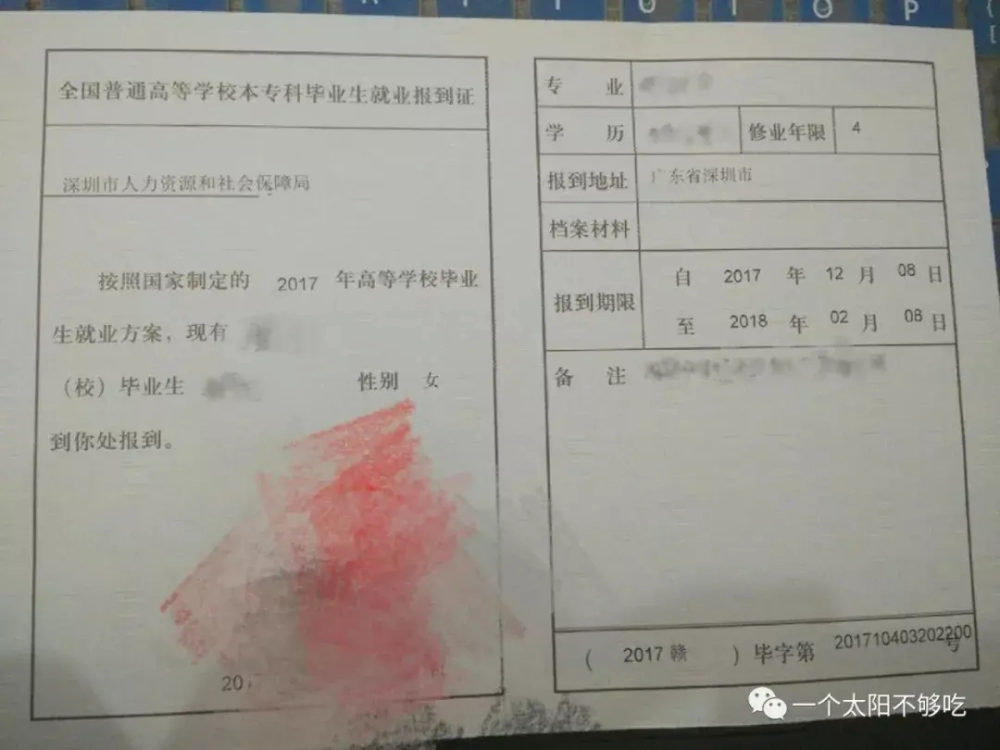 T U I O P
全国普通高等学校本专科毕业生就业报到证
深圳市人力资源和社会保障局
按照国家制定的 2017 年高等学校毕业
生就业方案，现有
（校）毕业生 性别 女
到你处报到。
20
专 业
学 历 修业年限 4
报到地址 广东省深圳市
档案材料
报到期限 自 2017 年 12 月 08 日
至 2018 年 02 月 08 日
备 注
（ 2017 赣 ）毕字第 201710403202200 号
一个太阳不够吃